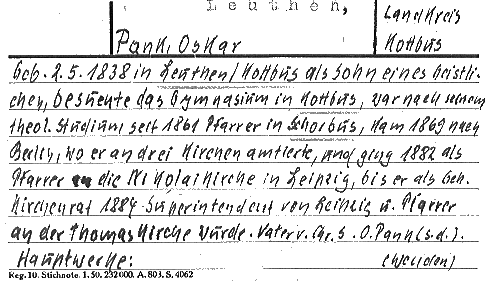 Leuthen,
Landkreis
Kottbus
Pank, Oskar
Geb. 2.5.1838 in Leuthen/Kottbus als Sohn eines Geistli-
chen, besuchte das Gymnasium in Kottbus, war nach seinem
theol. Studium, seit 1861 Pfarrer in Schorbus, kam 1869 nach
Berlin, wo er an drei Kirchen amtierte, und ging 1882 als
Pfarrer an die Nikolaikirche in Leipzig, bis er als Geh.
Kirchenrat 1884 Superintendent von Leipzig u. Pfarrer
an der Thomaskirche wurde. Vater v. Chr. S. O. Pank (s.d.).
Hauptwerke: (wenden)
Reg. 10. Stichnote. 1. 50. 232000. A. 803. S. 4062